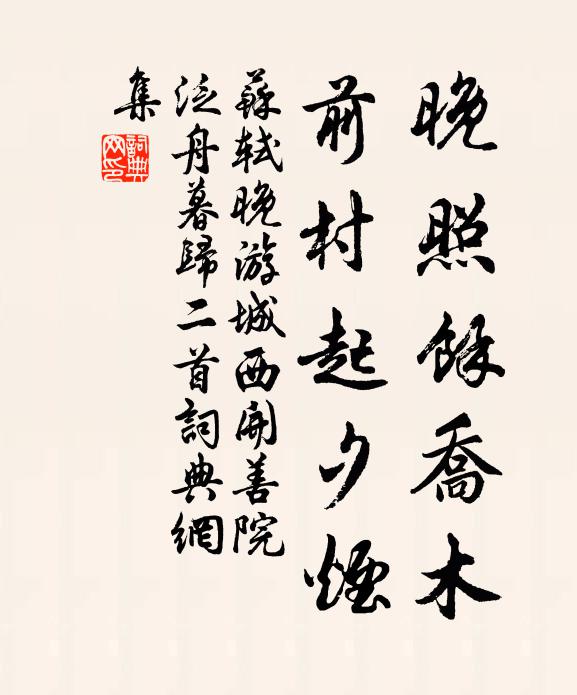 晚照餘喬木
前村起夕煙
蘇軾晚游城西開善院
泛舟暮歸二首詞典網
集
詞典網印